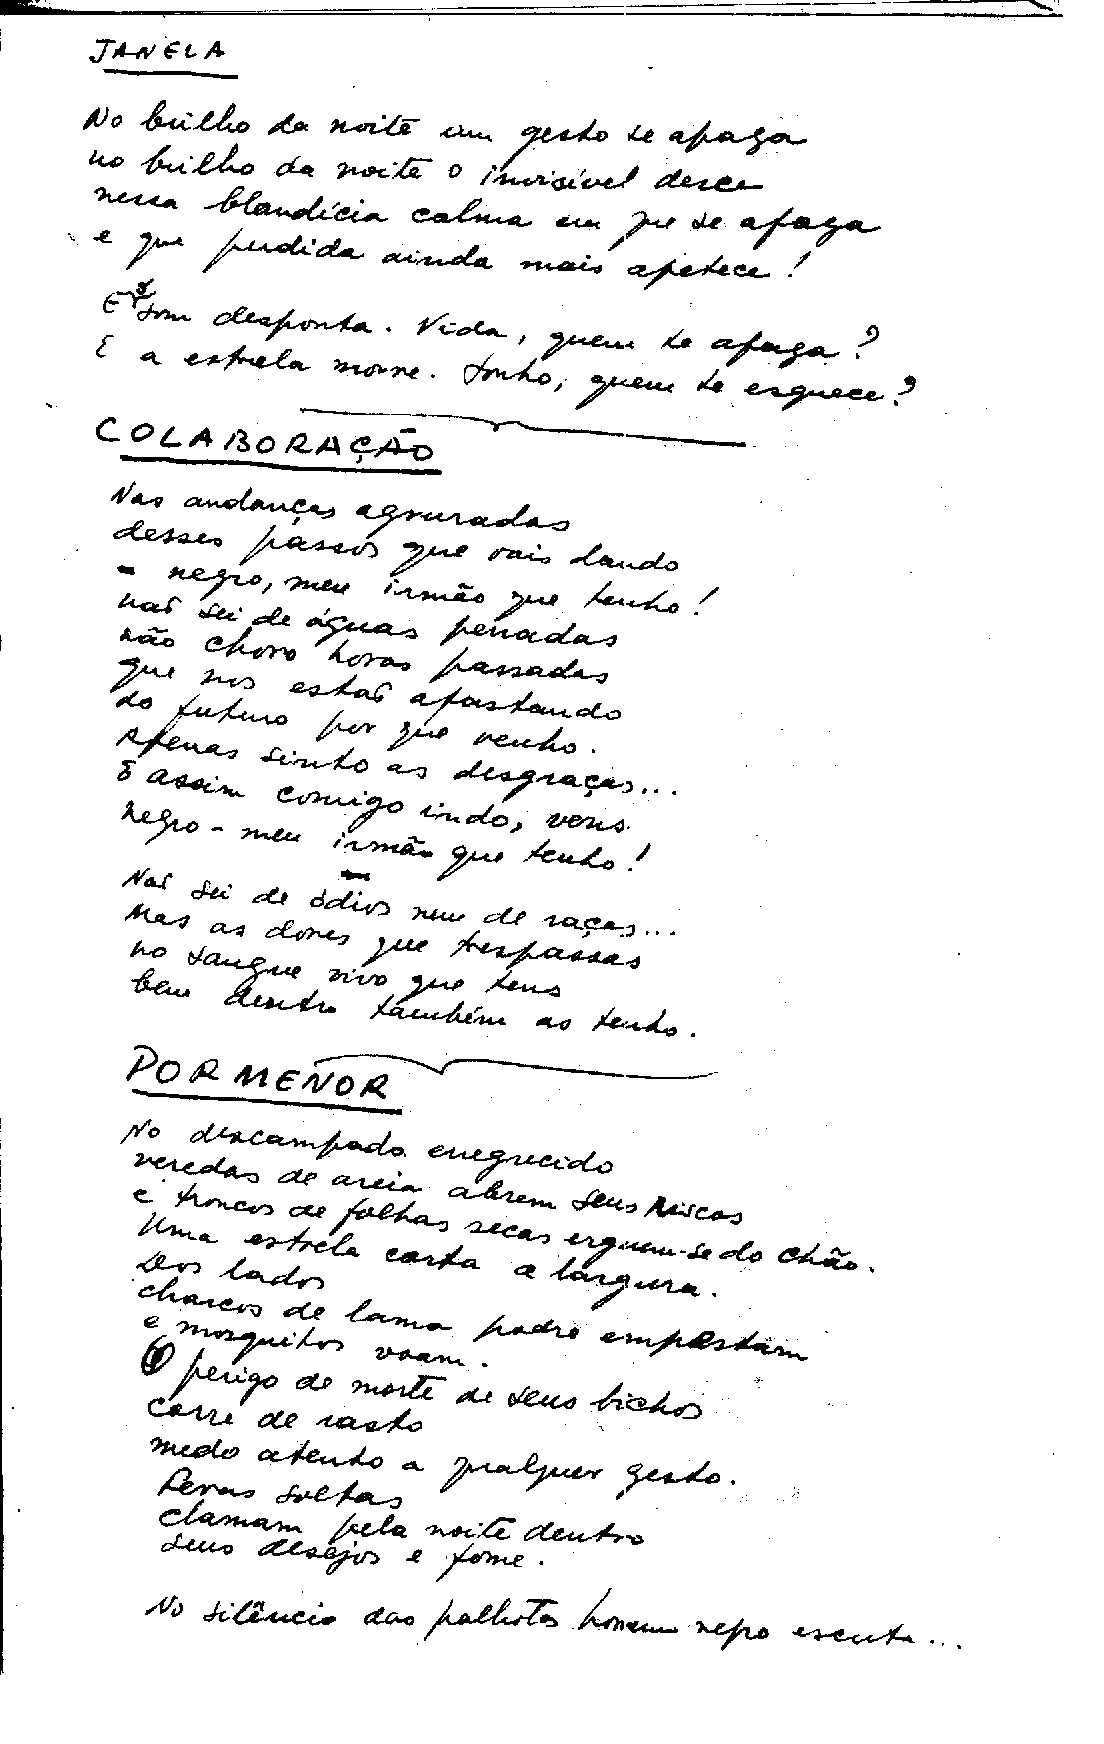 JANELA
No brilho da noite um gesto se apaga
no brilho da noite o invisível desce
nessa blandícia calma em que se afaga
e que perdida ainda mais apetece!
E o som desponta. Vida, quem te apaga?
E a estrela morre. Sonho, quem te esquece?
COLABORAÇÃO
Nas andanças agruradas
desses passos que vais dando
- negro, meu irmão que tenho!
não sei de águas penadas
não choro horas passadas
que nos estão afastando
do futuro por que venho.
Apenas sinto as desgraças...
E assim comigo indo, vens
negro - meu irmão que tenho!
Não sei de ódios nem de raças...
Mas as dores que trespassas
no sangue vivo que tens
bem dentro também as tenho.
PORMENOR
No descampado enegrecido
veredas de areia abrem seus riscos
e troncos de folhas secas erguem-se do chão.
Uma estrela corta a largura.
Dos lados
charcos de lama podre empestam
e mosquitos voam.
O perigo de morte de seus bichos
corre de rasto
medo atento a qualquer gesto.
Feras soltas
clamam pela noite dentro
seus desejos e fome.
No silêncio das palhotas homem negro escuta...